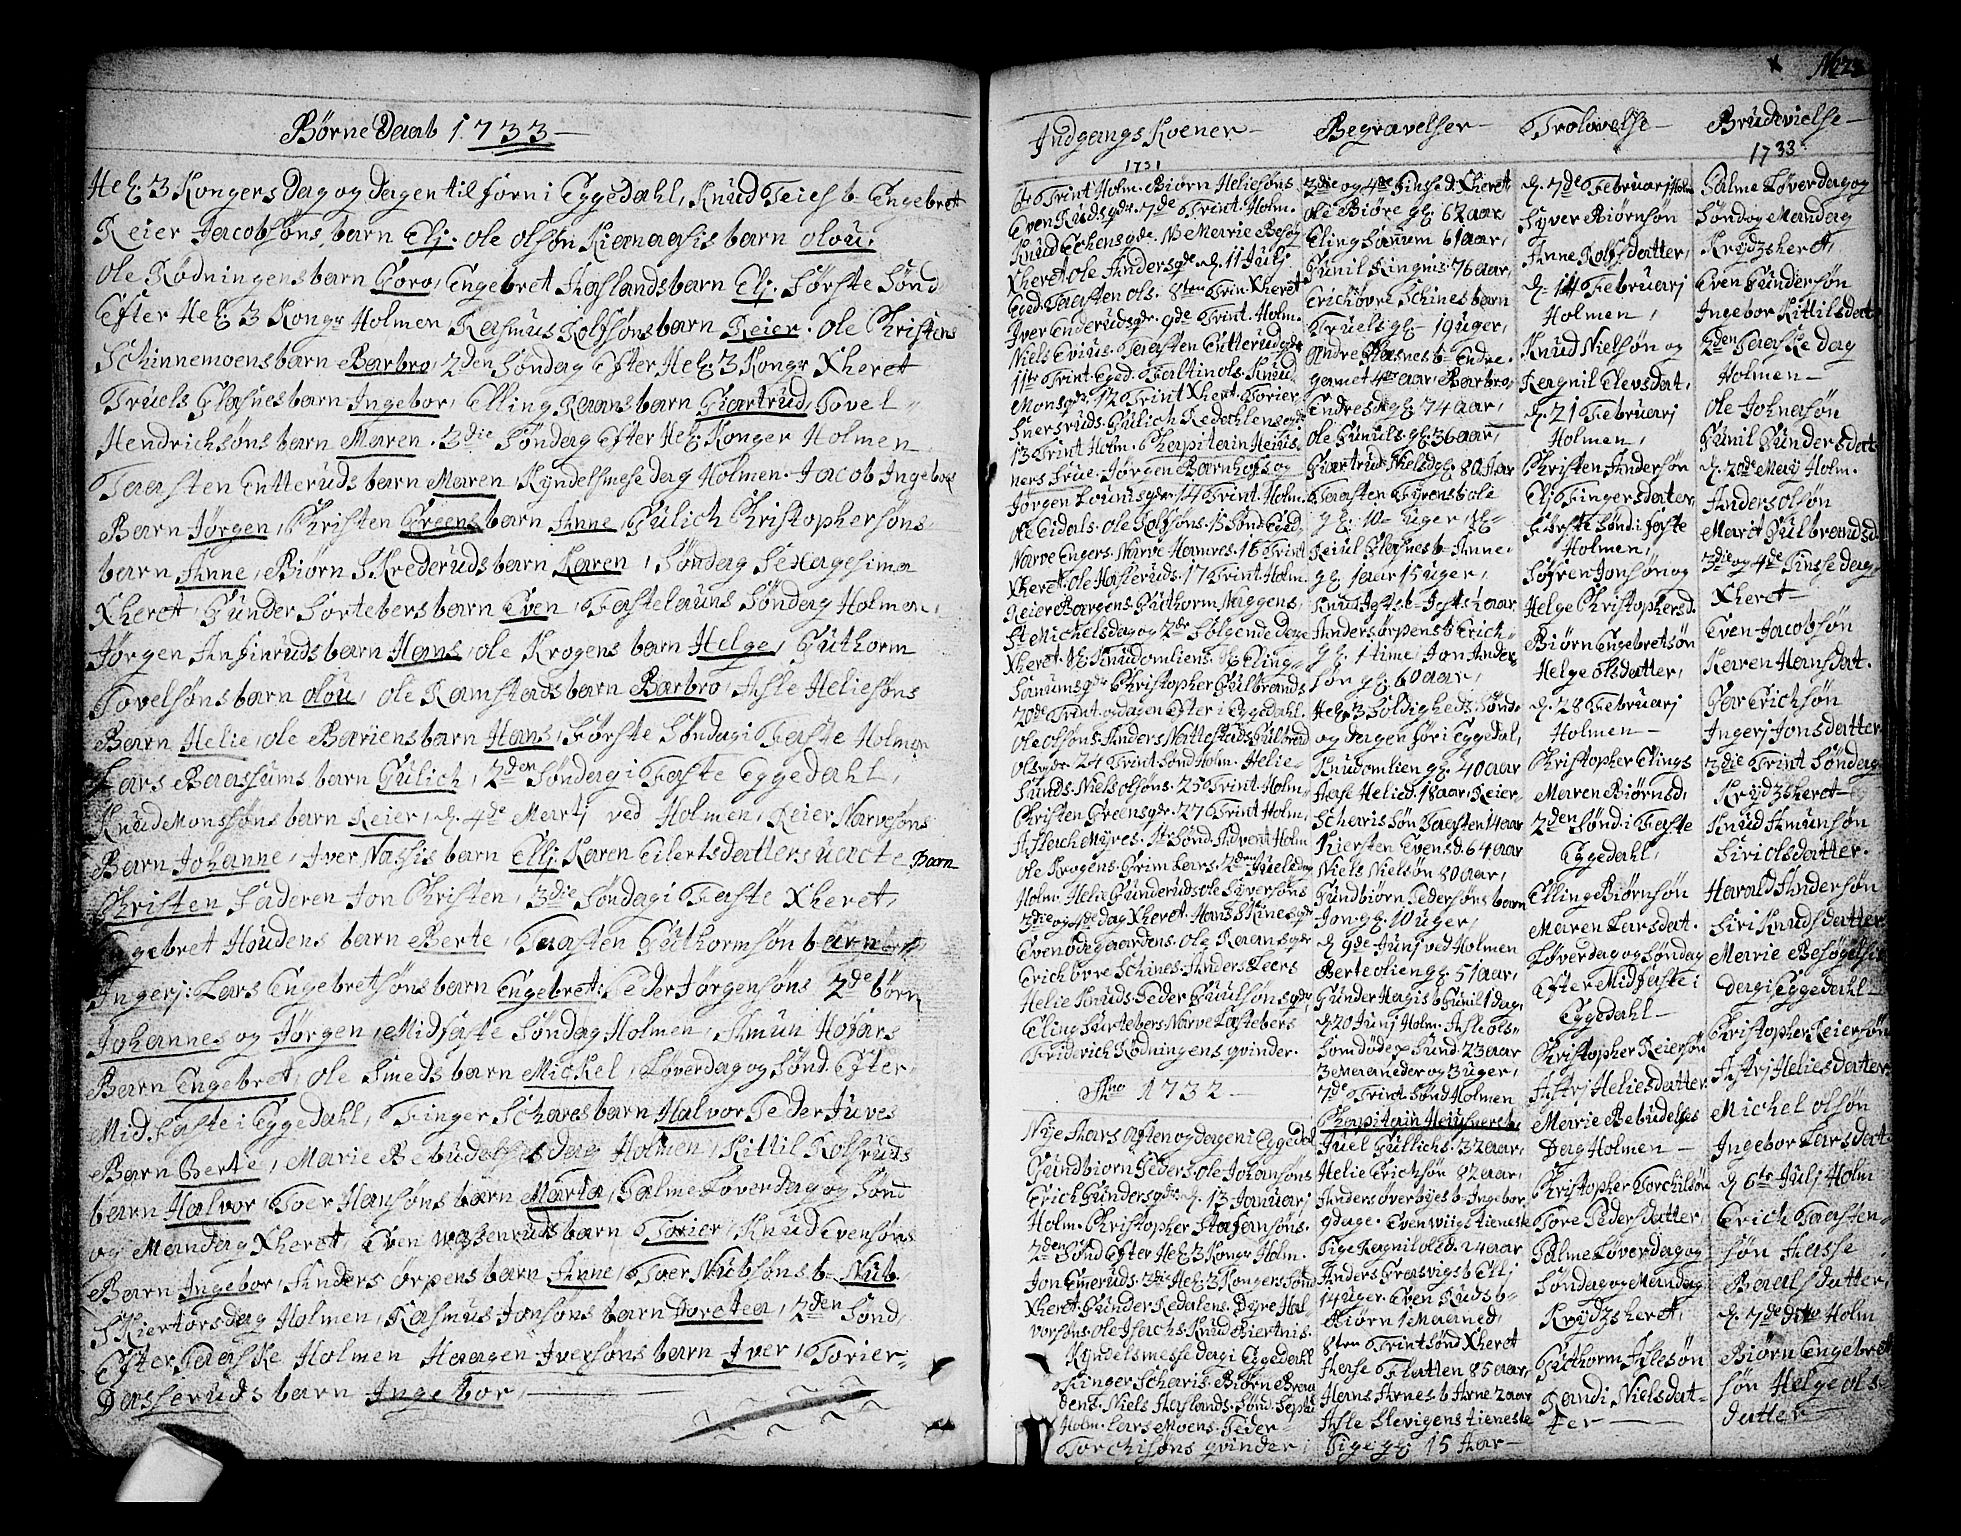 Børne Daab 1733
Hel: 3 Kongers Dag og dagen til forn i Eggedahl, Knud Teies b- Engebret
Reier Jacobsøns barn Elj. Ole Olsøn barn Olou,
Ole Rødningens barn Goro, Engebret Aaslands barn Elj. Første Sønd.
Efter Hel: 3 Kongr Holmen, Rasmus Rolfsøns barn Reier. Ole Christens
Schinnemoens barn Barbro, 2den Søndag Efter Hel: 3 Kongr Xheret
Truels Glasnes barn Ingebor, Elling Raans barn Giartrud, Tovel
Hendrichsøns barn Maren. 3die Søndag Efter Hel: Konger Holmen
Taasten Enteruds barn Maren, Kyndelsmese dag Holmen. Jacob Ingebrs
Barn Jørgen, Christen Greens barn Anne, Gulich Christophersøns
barn Anne, Biørn Skrederuds barn Karen, Søndag Sexagesima
Xheret, Gunder Sortebers barn Even, Fastelauns Søndag Holmen,
Jørgen Anfinruds barn Hans, Ole Krogens barn Helge, Guthorm
Tovelsøns barn Olou, Ole Ramstads barn Barbro, Asle Heliesøns
Barn Helie, Ole Bariens barn Hans, Første Søndag i Faste Holmen
Lars Baassums barn Gulich, 2den Søndag i Faste Eggedahl,
Knud Monssøns barn Reier, d. 4de Marti ved Holmen, Reier Narvesøns
Barn Johanne, Iver Nassis barn Elj. Karen Eilertsdatters uacte Barn
Christen Faderen Jon Christen, 3die Søndag i Faste Xheret,
Engebret Houdens barn Berte, Taasten Guthormsøn barn
Ingerj: Lars Engebretsøns barn Engebret: Peder Jørgensøns 2de børn
Johannes og Jørgen, Midfaste Søndag Holmen, Amun Høgars
Barn Engebret, Ole Smeds barn Mickel, Løverdag og Sønd. Efter
Midfaste i Eggedahl, Finger Schares barn Halvor Peder Juves
Barn Berte, Marie Bebudelses dag Holmen, Kittil Kolsruds
barn Halvor, Toer Hansøns barn Marta, Palme Løverdag og Sønd
og Mandag Xheret, Even barn Torier, Knud Evensøns
Barn Ingebor, Anders Ørpens barn Anne, Toer Nubsøns b- Nub.
Skiertorsdag Holmen, Rasmus Jonsøns barn Dorotea, 2den Sønd,
Efter Paaske Holmen Haagen Iversøns barn Iver, Torier
Dasseruds barn Ingebor,
Indgangs Koener
1731
6te Trint Holm. Biørn Heliesøns
Even Rudsgdr. 7de Trint. Holm.
Knud Eckensgde. NB Marie Besøg
Xheret Ole Andersgde d. 11 Julj
Eged. Taasten Ols. 8ten Trin Xheret
Iver Enderudsgdr. 9de Trint. Holm.
Niels Evius. Taasten Entterudgdr
11te Trint Eged. Faltin Ols. Knud
Monsgdr. 12 Trint Xheret. Torier
Snersruds. Gulich Redahlens gdr
13 Trint Holm. Chapitain
ners Frue. Jørgen Barnhols og
14 Trint. Holm.
Ole Eidals. Ole Tolfsøns. 15 Sønd. Eged,
Narve Engers. Narve Hamres. 16 Trint
Xheret. Ole Hasleruds. 17 Trint Holm.
Reier Borgens. Guthorm Naggens,
St Michelsdag og 2de Følgende Dage
Xheret. Knud Omliens. Eling
Sanumsgdr Christopher Gulbrands
20de Trint. og dagen Efter i Eggedahl,
Ole Olsøns. Anders Gulbrand
Olsgdr 24 Trint Sønd Holm. Helie
Sunds Niels Olsøns. 25 Trint. Holm
Christen Greensgdr. 27 Trint Holm,
Aslach Myres. 1te Sønd Advent Holm
Ole Krogens. Grim Lars. 2den Juledag
Holm. Helie Gunderuds Ole Syversøns
3die og 4de dag Xheret. Hans Skinesgdr
Even Ødegaardens. Ole Raansgdr
Erich Øvre Schines. Anders Teers
Helie Knuds. Peder Guulsønsgdr
Eling Surtebers. Narve Fastebers
Friderich Rødningens qvinder.
Ano 1732
Nye Aars Aften og dagen i Eggedal
Gundbiørn Peders. Ole Johansøns
Erich Gundersgdr d. 13 Januarj
Holm. Christopher Stafansøns.
2den Sønd Efter Hel: 3 Kongr Holm.
Jon Emeruds. 3die Hel: 3 Kongers Sønd
Xheret. Gunder Redalens. Dyre Hal
vorsøns. Ole Isachs. Knud Biertnis.
Kyndelsmesse dag i Eggedahl
Finger Scharis. Biørn Braa
dens. Niels Aaslands. Sønd.
Holm. Lars Moens. Peder
Torchisøns qvinder,
Begravelser
3die og 4de Pinse d. Xheret
Ole Biøre gl: 62 aar,
Eling Sanum 61 aar,
Gunil Ringnis 76 aar,
Erich Øvre Schines barn
Truels gl- 19 uger,
Andre Glasnes b- Endre
gamel 4re aar, Barbro
Endresd gl: 74 aar,
Ole Gunuls gl: 36 aar,
Giartrud Nielsd gl: 80 Aar
Taasten Fyrens b Ole
gl: 10 Uger,
Reiul Glasnes b- Anne
gl: 1 aar 15 uger,
Knus Asts b- Ast ½ aar
Anders Ørpens b Erich
gl: 1 time, Jon Anders
søn gl: 60 aar,
Hel: 3 Foldigheds Sønd
og dagen før i Eggedal,
Knud Omlien gl: 40 aar
Aase Helied. 18 aar, Reier
Scharis Søn Taasten 14 aar
Kiersten Evensd: 64 aar
Niels Nielsøn 80 aar,
Gundbiørn Pedersøns barn
Jon gl: 10 uger,
d. 9de Junj ved Holmen
Berte Olien gl: 51 aar,
Gunder Hagis b Gunil 1 dag,
d 20 Junj Holm. Asle Ols
Som døde p Sund. 23 aar
3 Maaneder og 3 uger,
7de Trint Sønd Holmen
Chapitain
Juel Gullichs. 32 aar,
Helie Erichsøn 82 aar,
Anders Overbyes b- Ingebor
9 dage. Even tieneste
Pige Ragnil Olsd. 24 aar
Anders Grasvigs b Elj
14 uger. Even Ruds b-
Biørn 1 Maaned,
8ten Trint Sønd Xheret
Aase Flatten 85 aar,
Hans Arnes b Arne 2 aar
Asle Slevigens tieneste
Pige gl: 15 Aar
Trolovelse
d. 7de Februarj Holm
Syver Biørnsøn
Anne Rolfsdatter,
d. 14 Februarj
Holmen,
Knud Nielsøn og
Ragnil Elevsdat,
d. 21 Februarj
Holmen,
Christen Andersøn
Elj Fingersdatter,
Første Sønd: i Faste
Holmen,
Søfren Jonsøn og
Helge Christophersd.
Biørn Engebretsøn
Helge Olsdatter,
d. 28 Februarj
Holmen
Christopher Elings
Maren Biørnsd,
2den Sønd: i Faste
Eggedahl,
Elling Biørnsøn
Maren Larsdat.
Løverdag og Søndag
Efter Midfaste i
Eggedahl
Christopher Reiersøn
Astrj Heliesdatter
Marie Bebudelses
Dag Holmen
Christopher Torchildsøn
Tore Pedersdatter,
Palme Løverdag og
Søndag og Mandag
Krydzheret,
Guthorm Aslesøn
Randi Nielsdat-
ter
Brudevielse
1733
Palme Løverdag og
Søndog Mandag
Krydzheret,
Even Gundersøn
Ingebor Kittilsdat
2den Paaske dag
Holmen
Ole Johnasøn
Gunil Gundersdat
d. 20de Maij Holm.
Anders Olsøn
Marit Gulbrandsd.
3die og 4de Pinse dag
Xheret
Even Jacobsøn
Karen Hansdat.
Par Erichsøn
Ingerj Jonsdatter
3die Trint Søndag
Krydzheret
Knud Amunsøn
Siri Olsdatter.
Harald Andersøn
Siri Knudsdatter
Marie Besøgelsis
dag i Eggedahl
Christopher Reiersøn
Astrj Heliesdatter
Michel Olsøn
Ingebor Larsdat
d 6te Julj Holm
Erich Taasten-
søn Aasse
Baalsdatter,
d. 7de dito Holm
Biørn Engebret
søn Helge Ols
datter